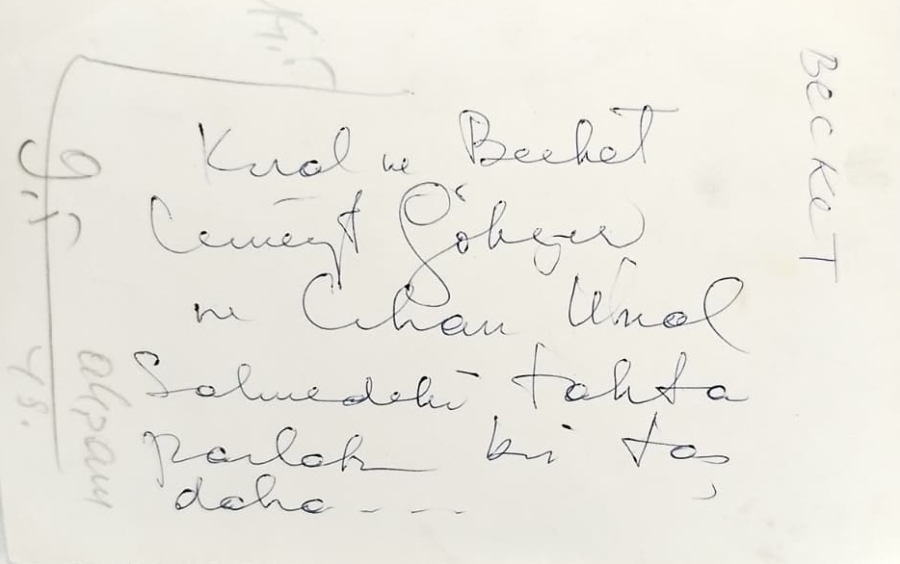 Kral ve Becket
Cüneyt Gökçer
ve Cihan Ünal
Sahnedeki tahta
parlak bir taş
daha ----
BECKET
akşam